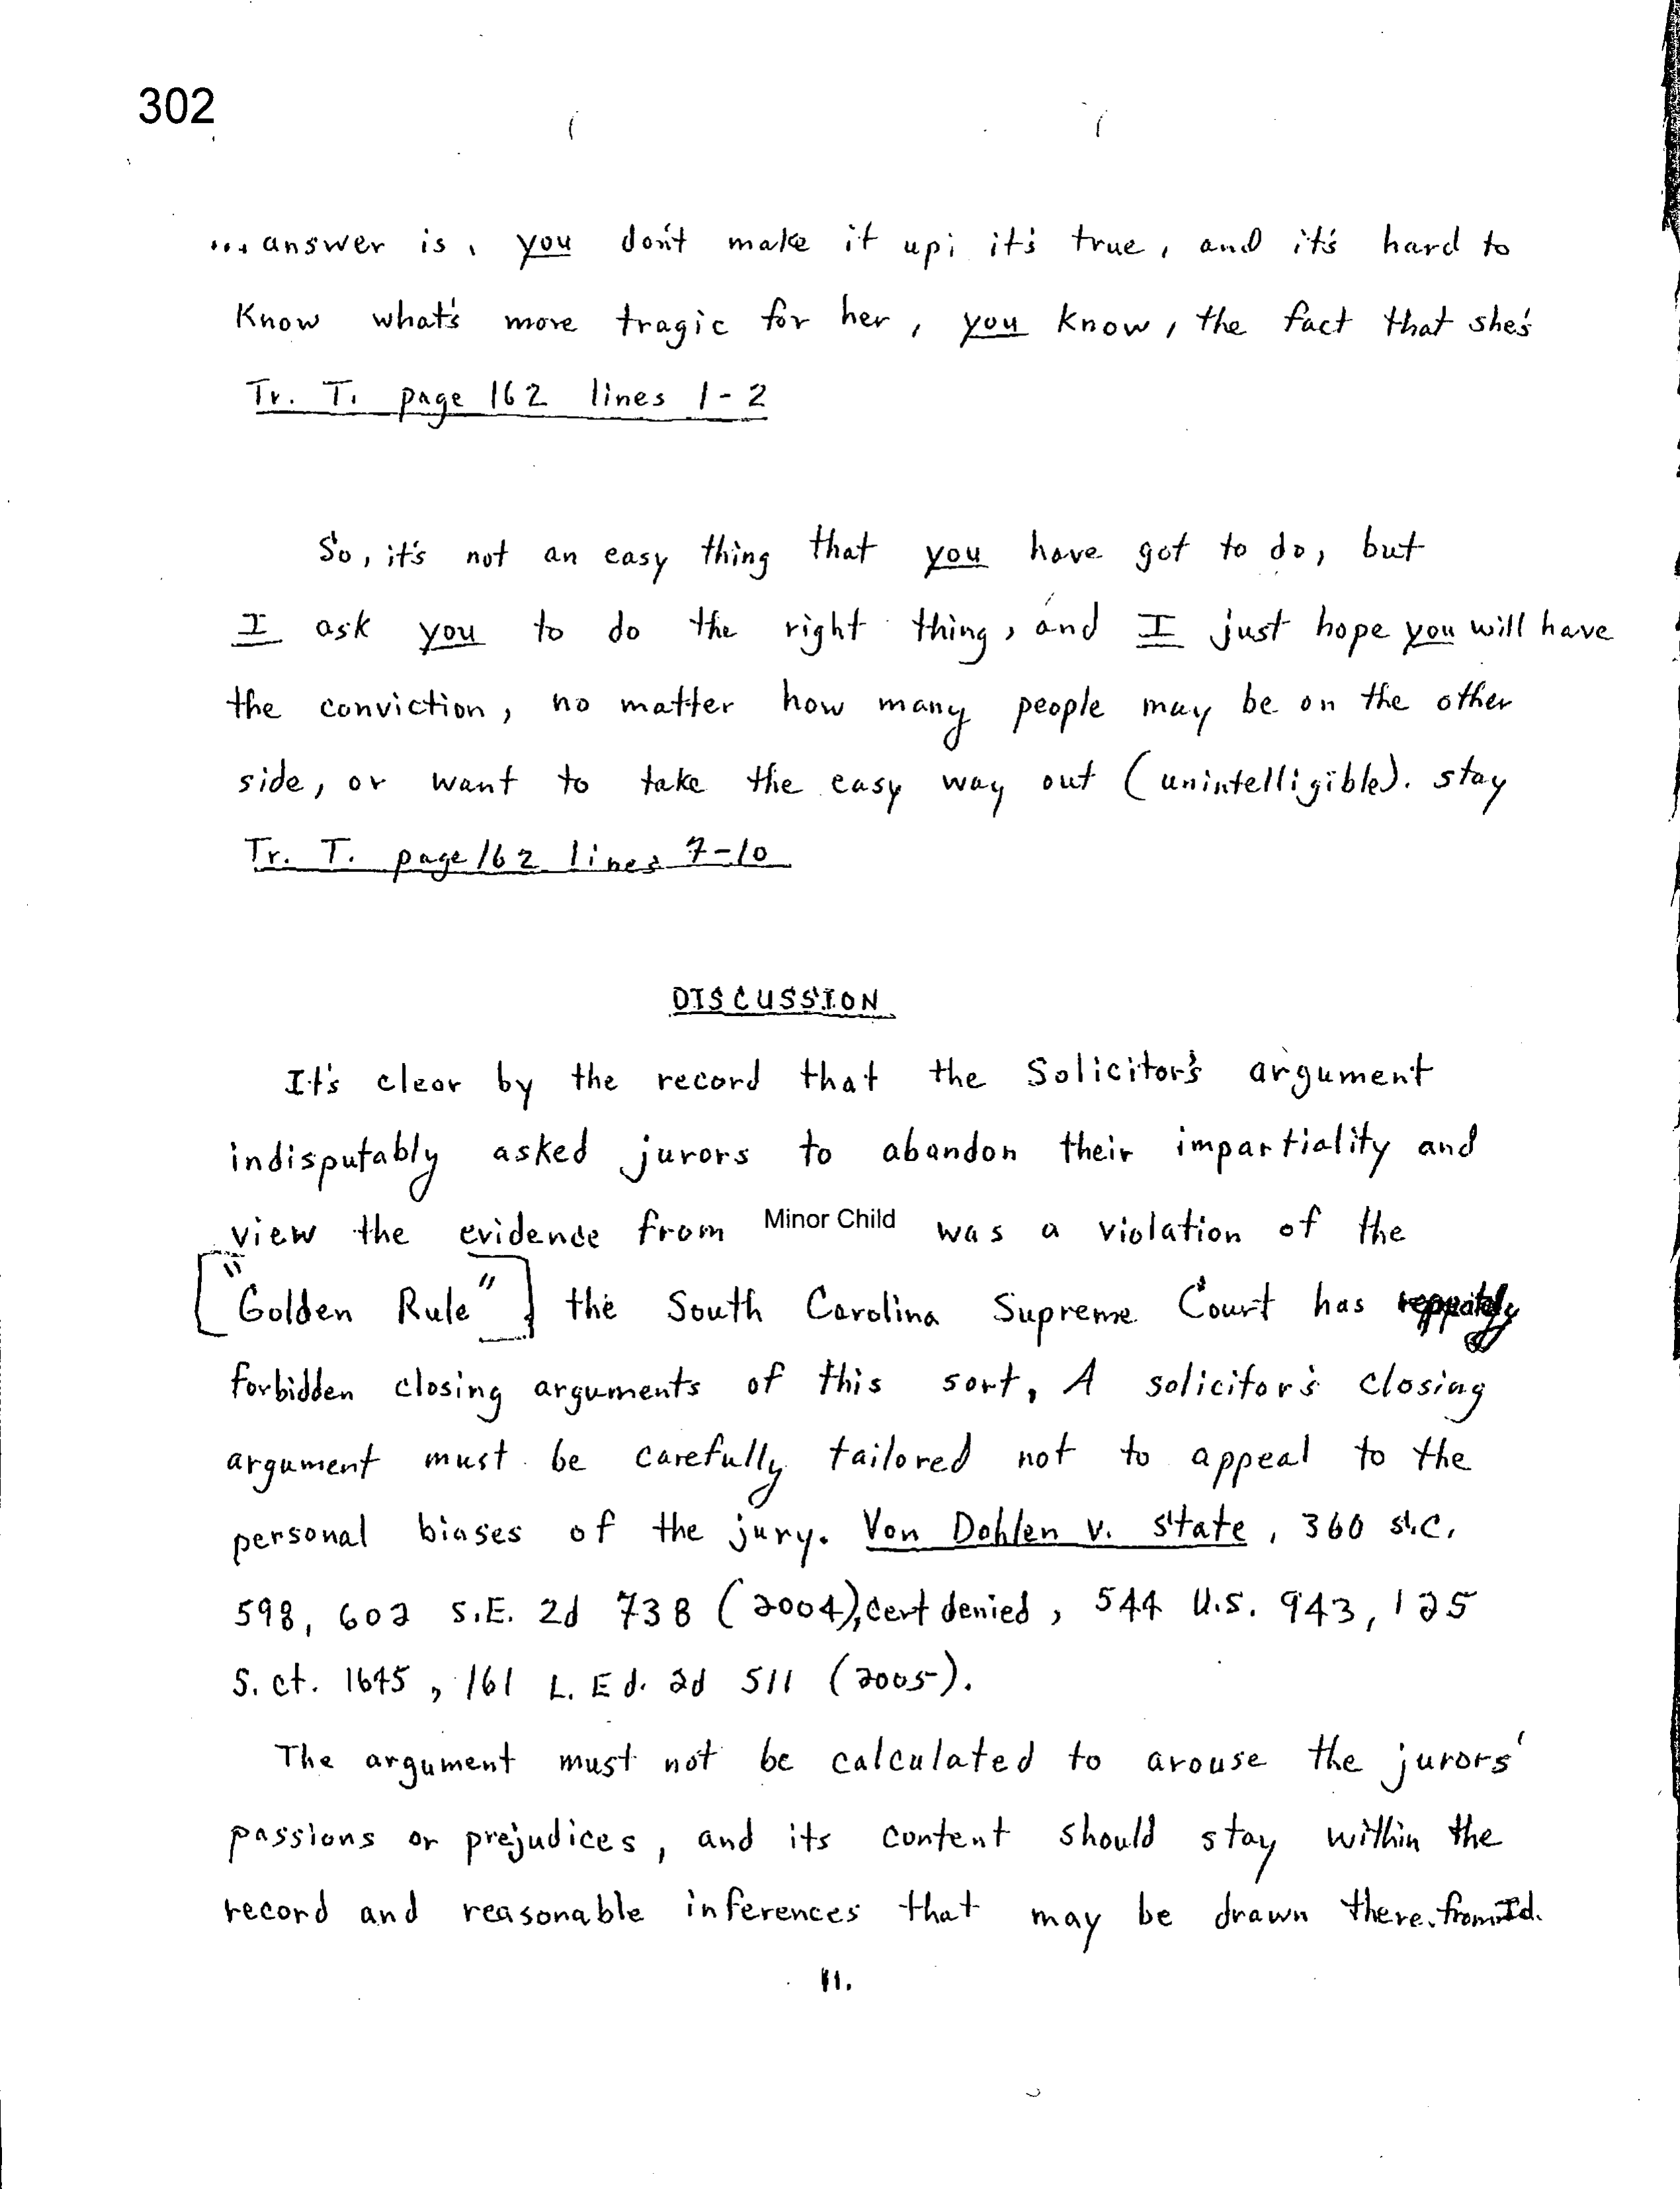 302
... answer is, you don't make it up; it's true, and it's hard to
Know what's more tragic for her, you know, the fact that she's
Tr. T. page 162 lines 1-2
So, it's not an easy thing that you have got to do, but
I ask you to do the right thing, and I just hope you will have
the conviction, no matter how many people may be on the other
side, or want to take the easy way out (unintelligible). stay
Tr. T. page 162 lines 7-10
DISCUSSION
It's clear by the record that the Solicitor's argument
indisputably asked jurors to abandon their impartiality and
view the evidence from Minor Child was a violation of the
["Golden Rule"] the South Carolina Supreme Court has
forbidden closing arguments of this sort, A solicitor's closing
argument must be carefully tailored not to appeal to the
personal biases of the jury. Von Dohlen v. State, 360 S.C.
598, 602 S.E. 2d 738 (2004), cert denied, 544 U.S. 943, 125
S. ct. 1645, 161 L. Ed. 2d 511 (2005).
The argument must not be calculated to arouse the jurors'
passions or prejudices, and its content should stay within the
record and reasonable inferences that may be drawn there.from Id.
11.